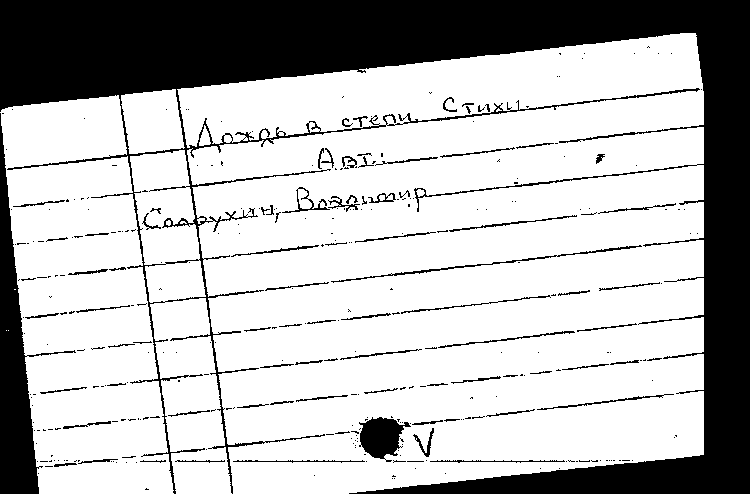 Дождь в степи. Стихи.
Авт.:
Солоухин, Владимир
V